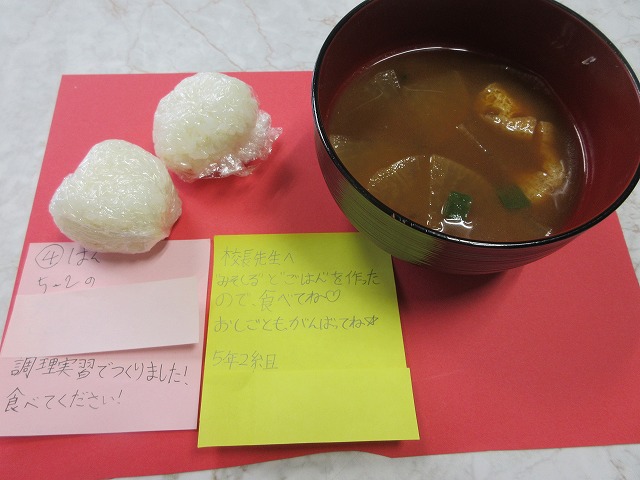 ④はん
5-2の
調理実習でつくりました!
食べてください!
校長先生へ
"みそしる"と"ごはん"を作った
ので、食べてね♡
おしごともがんばってね☆
5年2組